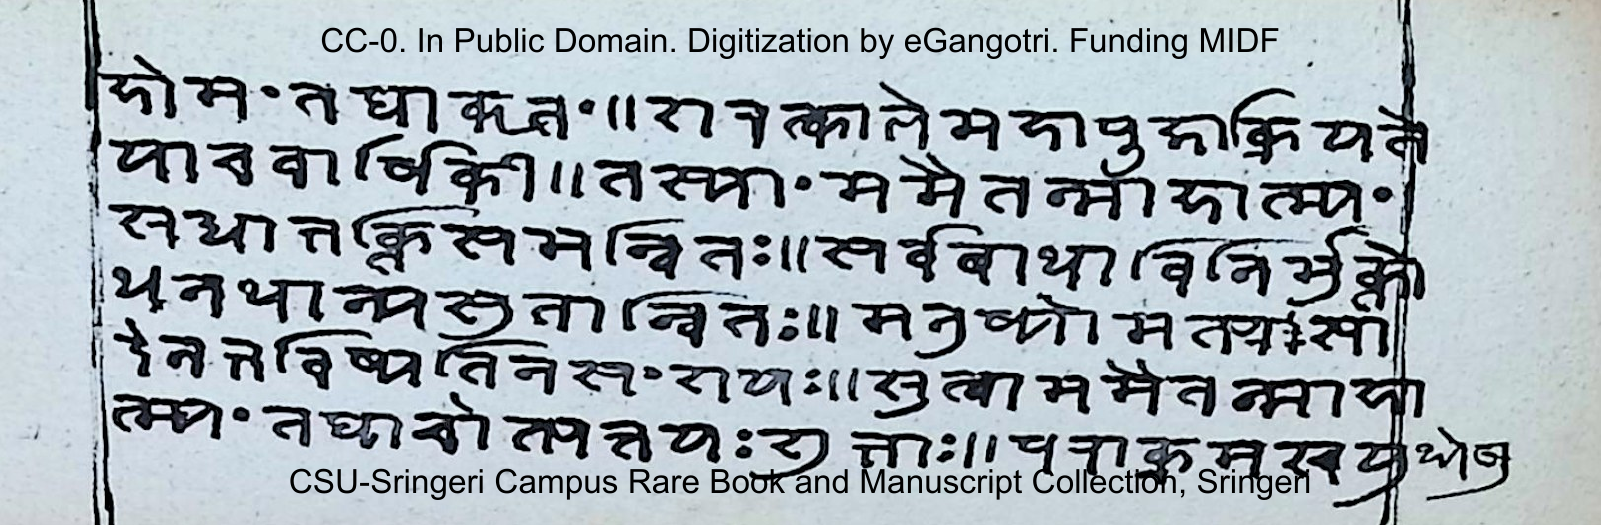 CC-0. In Public Domain. Digitization by eGangotri. Funding MIDF
होम तथाकृतं॥ शरत्काले महापुजाक्रियते
याचवार्षिकी॥ तस्यां ममैतन्माहात्म्यं
भक्तिसमन्वितः॥ सर्वबाधाविनिर्मुक्तो
धनधान्यसुतान्वितः॥ मनुष्यो
भविष्यतिनसंशयः॥ श्रुत्वा ममैतन्माहा
त्म्यं तथाचोत्पत्तयः शुभाः॥ पराक्रम
CSU-Sringeri Campus Rare Book and Manuscript Collection, Sringeri